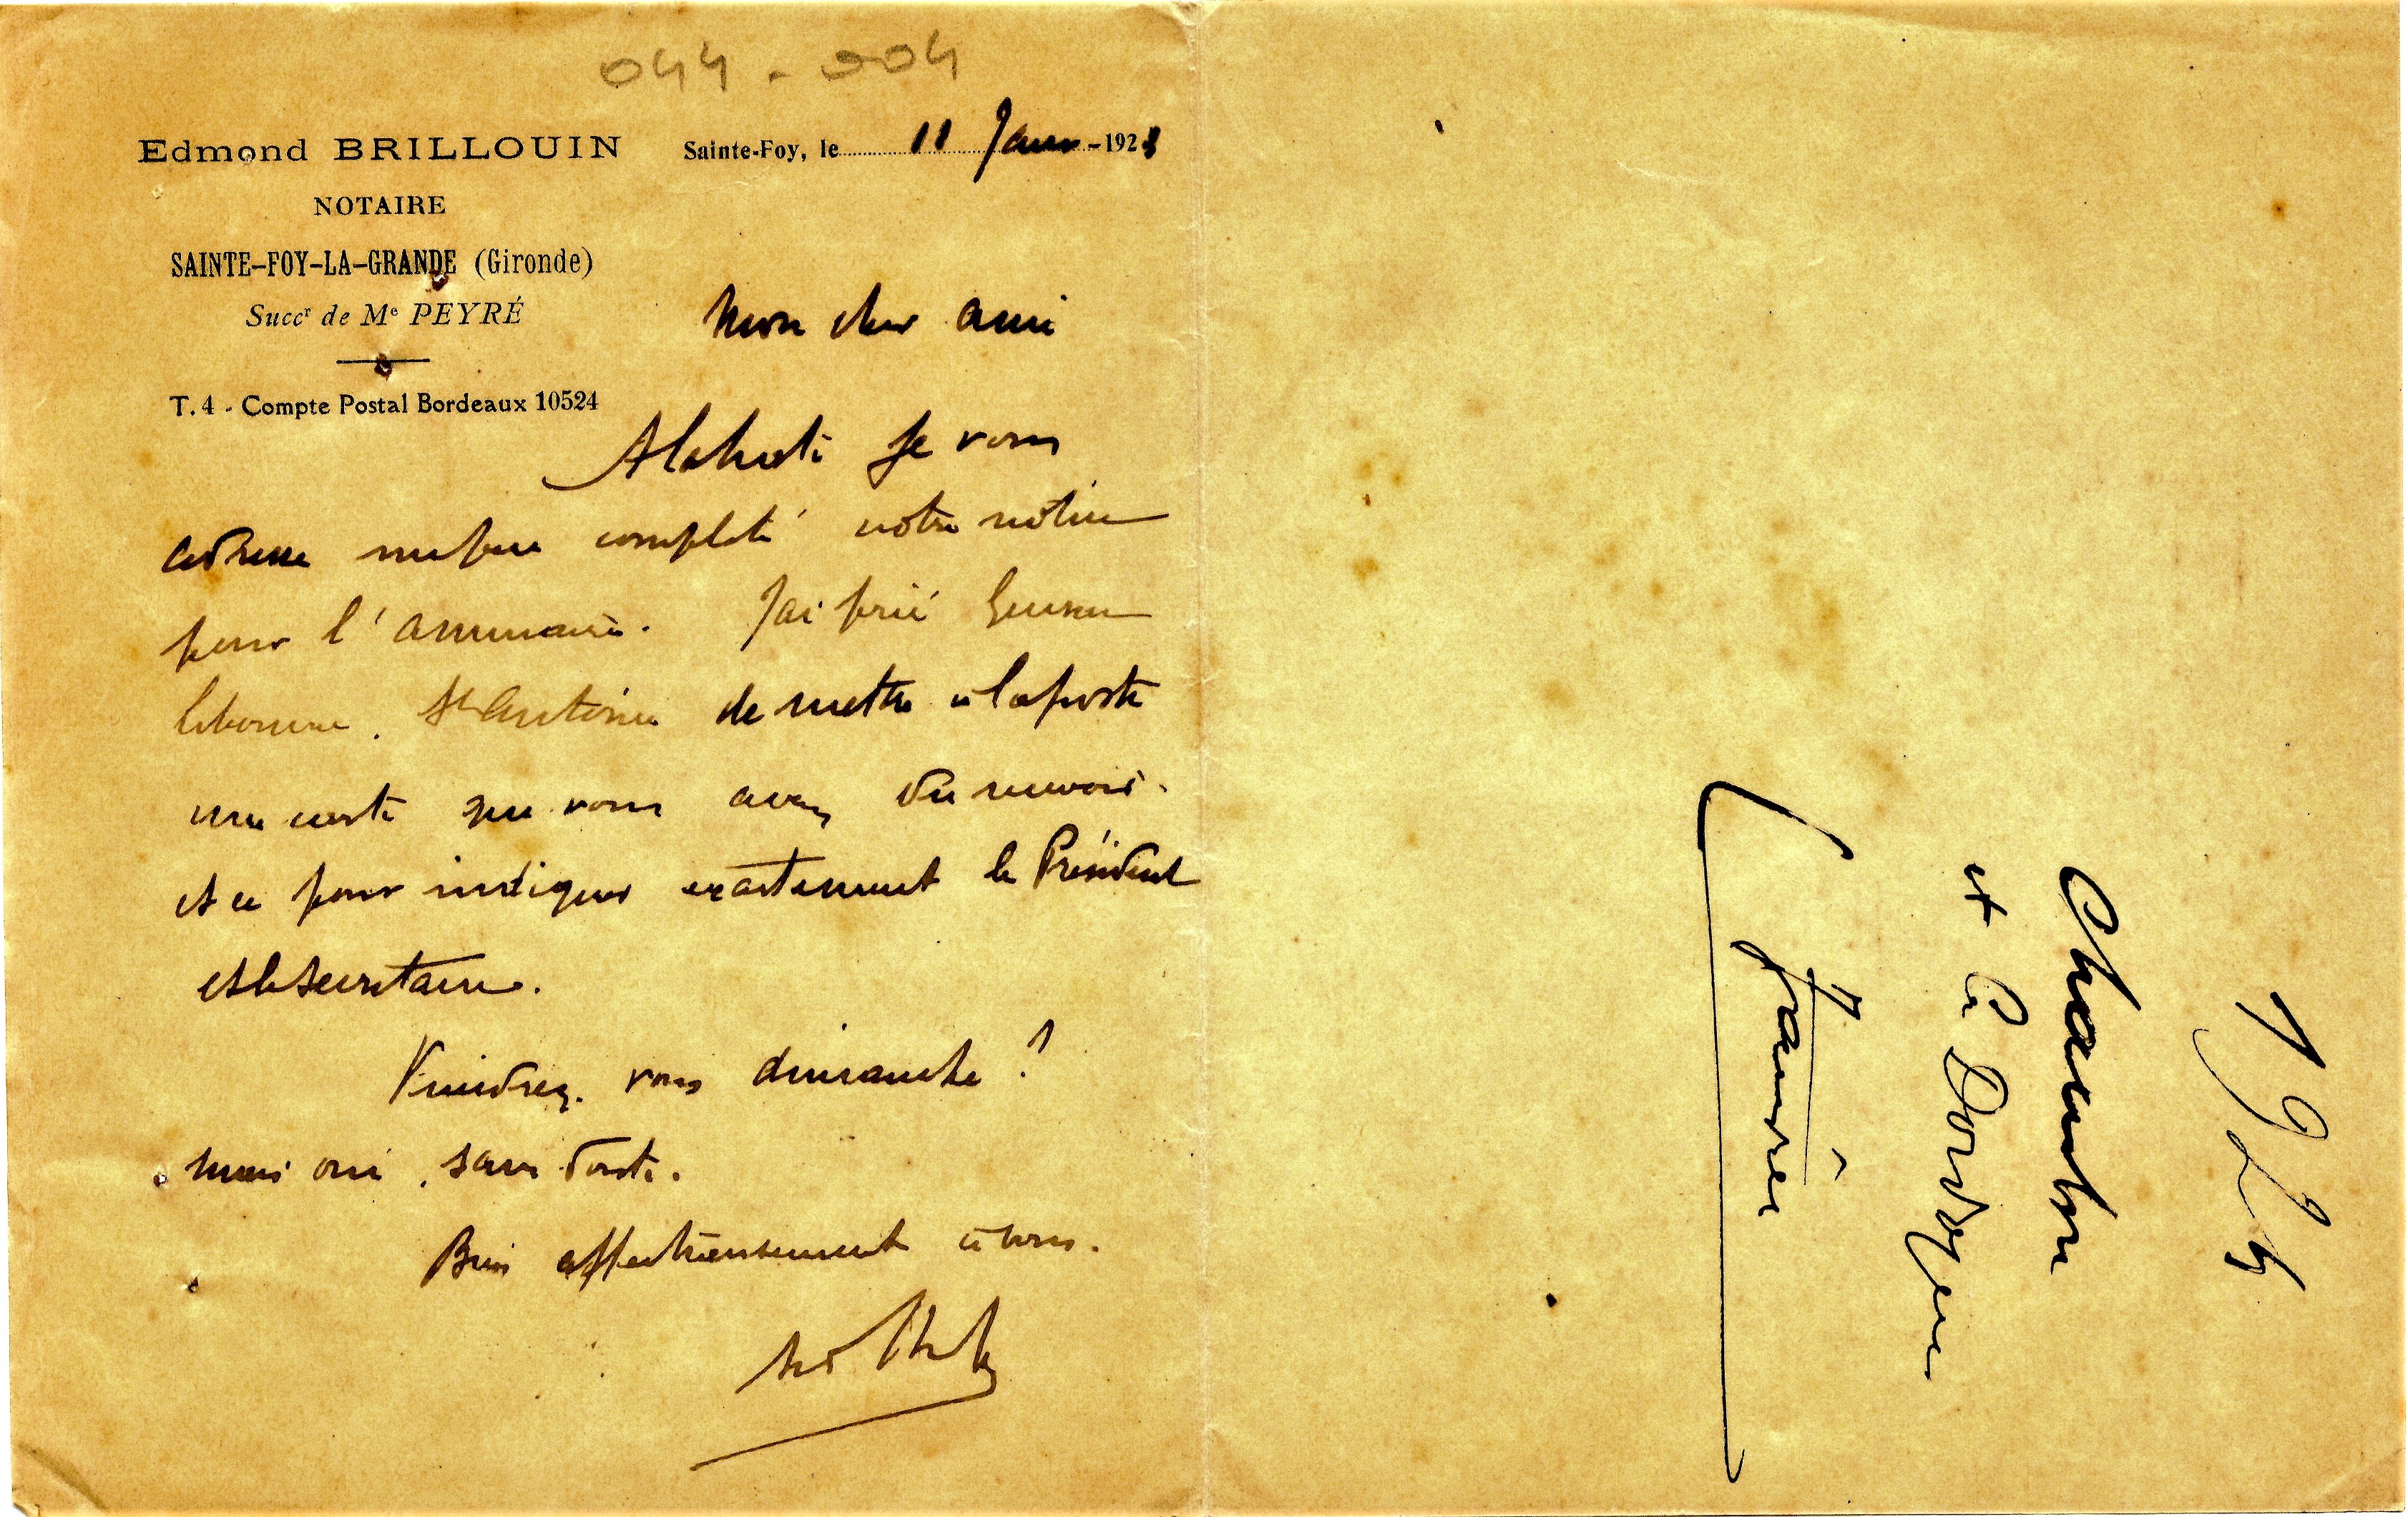 044-004
Edmond BRILLOUIN
NOTAIRE
SAINTE-FOY-LA-GRANDE (Gironde)
Succr de Me PEYRÉ
T. 4 - Compte Postal Bordeaux 10524
Sainte-Foy, le 11 Janv - 1928
Mon cher ami
A la hate je vous
adresse complété notre notice
pour l'annuaire. J'ai prié
Libourne. St Antoine de mettre à la poste
une carte que vous avez du recevoir.
et ce pour indiquer exactement le Président
et le secretaire.
Viendrez-vous dimanche ?
mais oui, sans doute.
Bien affectueusement à vous.
1924
Chambre
et Cie Dordogne
Janvier